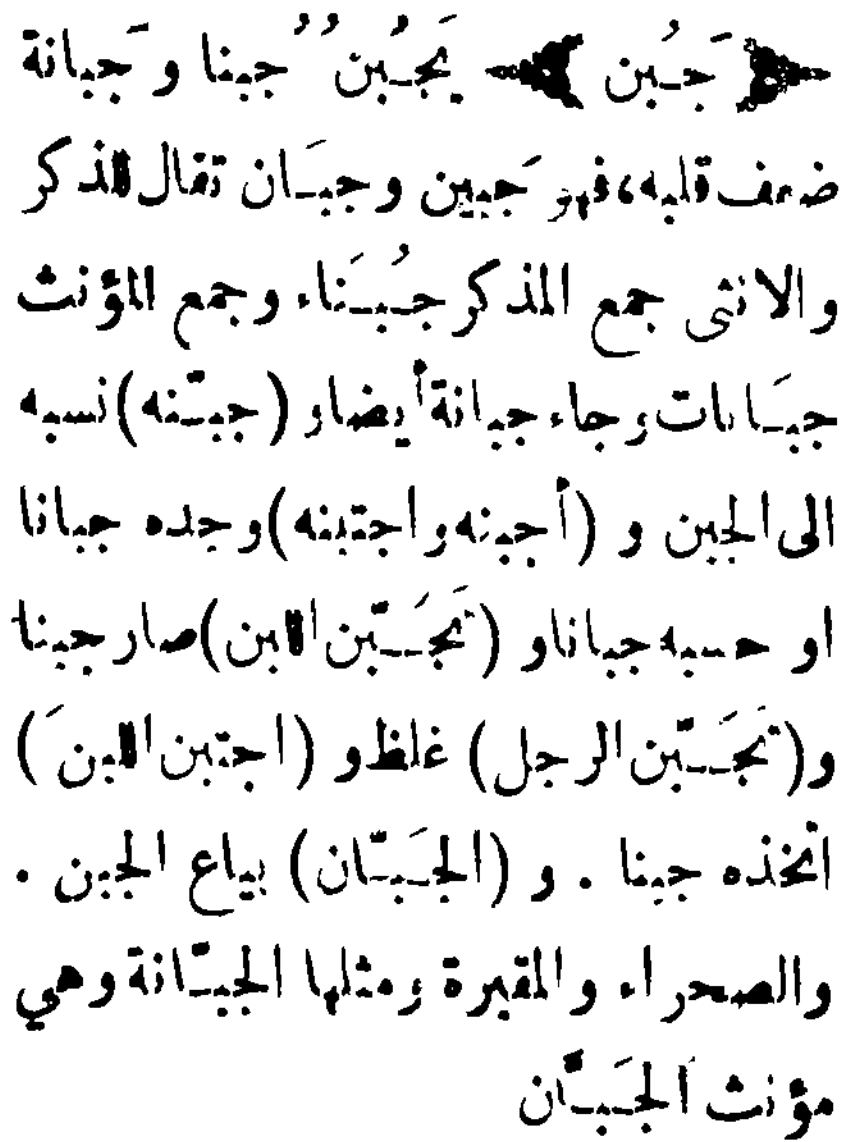 ﴿ جَبُن ﴾ يَجْبُن جُبُنا وجَبانة
ضعف قلبه، فهو جَبين وجبَان تقال للذكر
والانثى جمع المذكر جُبَناء وجمع المؤنث
جبَانات وجاء جبانة أيضا و (جبّنه) نسبه
الى الجبن و (أجبنه واجتبنه) وجده جبانا
او حسبه جبانا و (تَجَبّن اللبن) صار جبنا
و (تَجَبّن الرجل) غلظ و (اجتبن اللبنَ)
اتخذه جبنا . و (الجَبّان) بياع الجبن .
والصحراء والمقبرة ومثلها الجبّانة وهي
مؤنث الجَبَّان